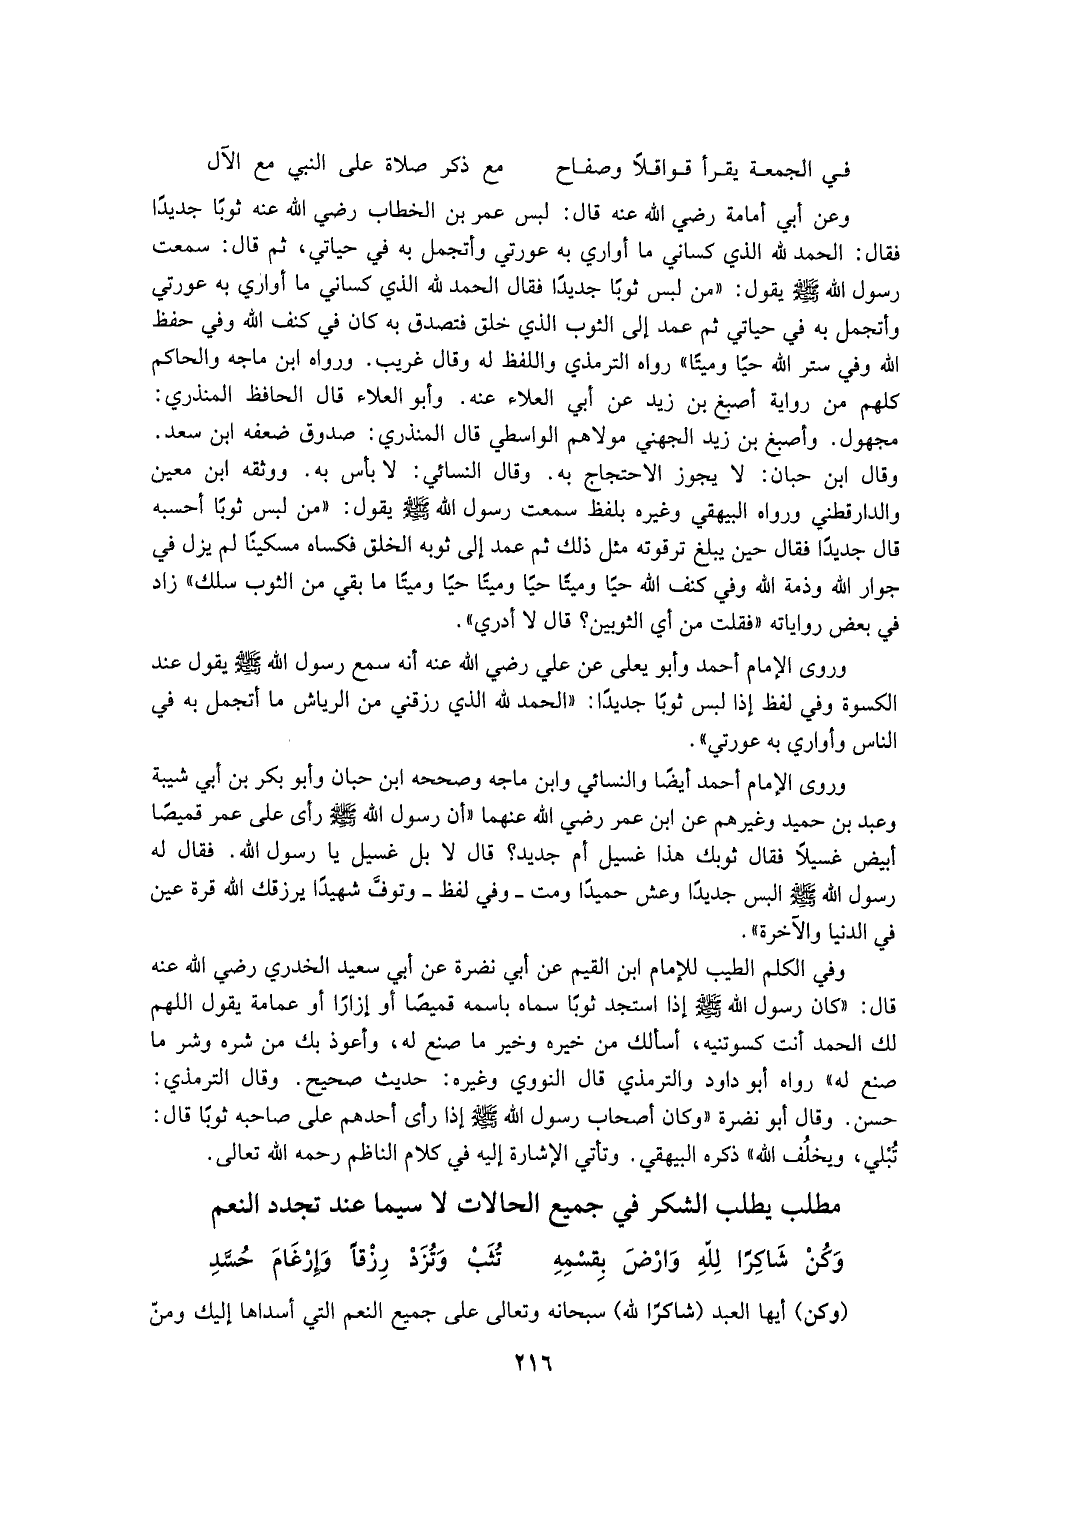 في الجمعة يقرأ قواقلاً وصفاح مع ذكر صلاة على النبي مع الآل
وعن أبي أمامة رضي الله عنه قال: لبس عمر بن الخطاب رضي الله عنه ثوبًا جديدًا
فقال: الحمد لله الذي كساني ما أواري به عورتي وأتجمل به في حياتي، ثم قال: سمعت
رسول الله ﷺ يقول: «من لبس ثوبًا جديدًا فقال الحمد لله الذي كساني ما أواري به عورتي
وأتجمل به في حياتي ثم عمد إلى الثوب الذي خلق فتصدق به كان في كنف الله وفي حفظ
الله وفي ستر الله حيًا وميتًا» رواه الترمذي واللفظ له وقال غريب. ورواه ابن ماجه والحاكم
كلهم من رواية أصبغ بن زيد عن أبي العلاء عنه. وأبو العلاء قال الحافظ المنذري:
مجهول. وأصبغ بن زيد الجهني مولاهم الواسطي قال المنذري: صدوق ضعفه ابن سعد.
وقال ابن حبان: لا يجوز الاحتجاج به. وقال النسائي: لا بأس به. ووثقه ابن معين
والدارقطني ورواه البيهقي وغيره بلفظ سمعت رسول الله ﷺ يقول: «من لبس ثوبًا أحسبه
قال جديدًا فقال حين يبلغ ترقوته مثل ذلك ثم عمد إلى ثوبه الخلق فكساه مسكينًا لم يزل في
جوار الله وذمة الله وفي كنف الله حيًا وميتًا حيًا وميتًا حيًا وميتًا ما بقي من الثوب سلك» زاد
في بعض رواياته «فقلت من أي الثوبين؟ قال لا أدري».
وروى الإمام أحمد وأبو يعلى عن علي رضي الله عنه أنه سمع رسول الله ﷺ يقول عند
الكسوة وفي لفظ إذا لبس ثوبًا جديدًا: «الحمد لله الذي رزقني من الرياش ما أتجمل به في
الناس وأواري به عورتي».
وروى الإمام أحمد أيضًا والنسائي وابن ماجه وصححه ابن حبان وأبو بكر بن أبي شيبة
وعبد بن حميد وغيرهم عن ابن عمر رضي الله عنهما «أن رسول الله ﷺ رأى على عمر قميصًا
أبيض غسيلاً فقال ثوبك هذا غسيل أم جديد؟ قال لا بل غسيل يا رسول الله. فقال له
رسول الله ﷺ البس جديدًا وعش حميدًا ومت ـ وفي لفظ ـ وتوفَّ شهيدًا يرزقك الله قرة عين
في الدنيا والآخرة».
وفي الكلم الطيب للإمام ابن القيم عن أبي نضرة عن أبي سعيد الخدري رضي الله عنه
قال: «كان رسول الله ﷺ إذا استجد ثوبًا سماه باسمه قميصًا أو إزارًا أو عمامة يقول اللهم
لك الحمد أنت كسوتنيه، أسألك من خيره وخير ما صنع له، وأعوذ بك من شره وشر ما
صنع له» رواه أبو داود والترمذي قال النووي وغيره: حديث صحيح. وقال الترمذي:
حسن. وقال أبو نضرة «وكان أصحاب رسول الله ﷺ إذا رأى أحدهم على صاحبه ثوبًا قال:
تُبْلي، ويخلُف الله» ذكره البيهقي. وتأتي الإشارة إليه في كلام الناظم رحمه الله تعالى.
مطلب يطلب الشكر في جميع الحالات لا سيما عند تجدد النعم
وَكُنْ شَاكِرًا لِلّهِ وَارْضَ بِقسْمِهِ تُثَبْ وَتُزَدْ رِزْقاً وَإِرْغَامَ حُسَّدِ
(وكن) أيها العبد (شاكرًا لله) سبحانه وتعالى على جميع النعم التي أسداها إليك ومنّ
٢١٦